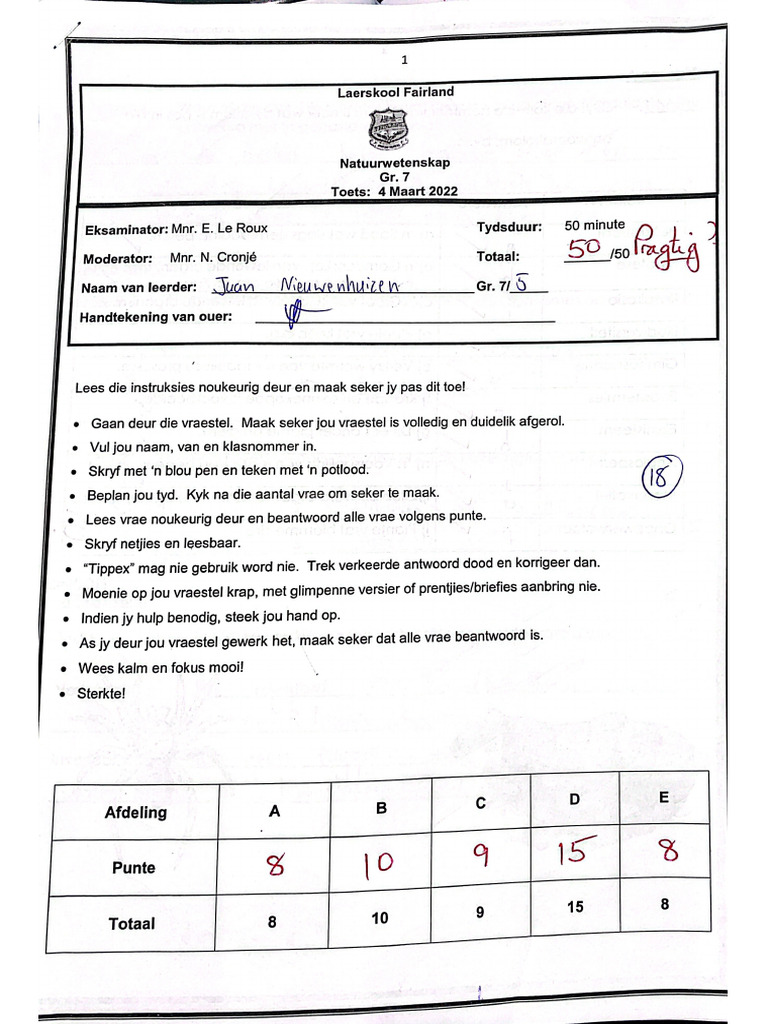 1
Laerskool Fairland
Natuurwetenskap
Gr. 7
Toets: 4 Maart 2022
Eksaminator: Mnr. E. Le Roux Tydsduur: 50 minute
Moderator: Mnr. N. Cronjé Totaal: 50/50 Pragtig
Naam van leerder: Juan Nieuwenhuizen Gr. 7/ 5
Handtekening van ouer:
Lees die instruksies noukeurig deur en maak seker jy pas dit toe!
• Gaan deur die vraestel. Maak seker jou vraestel is volledig en duidelik afgerol.
• Vul jou naam, van en klasnommer in.
• Skryf met 'n blou pen en teken met 'n potlood.
18
• Beplan jou tyd. Kyk na die aantal vrae om seker te maak.
• Lees vrae noukeurig deur en beantwoord alle vrae volgens punte.
• Skryf netjies en leesbaar.
• "Tippex" mag nie gebruik word nie. Trek verkeerde antwoord dood en korrigeer dan.
• Moenie op jou vraestel krap, met glimpenne versier of prentjies/briefies aanbring nie.
• Indien jy hulp benodig, steek jou hand op.
• As jy deur jou vraestel gewerk het, maak seker dat alle vrae beantwoord is.
• Wees kalm en fokus mooi!
• Sterkte!
Afdeling A B C D E
Punte 8 10 9 15 8
Totaal 8 10 9 15 8